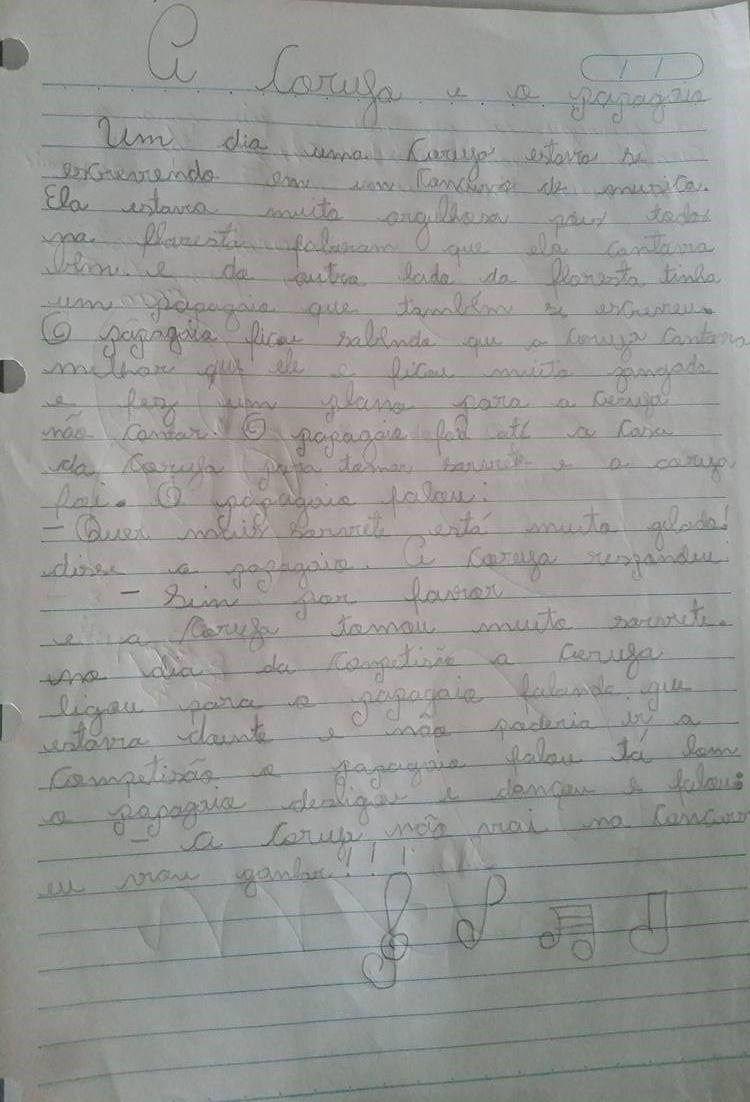 A Coruja e o papagaio
Um dia uma Coruja estava se
escrevendo em um Concurso de musica.
Ela estava muito orgilhosa pois todos
na floresta falavam que ela cantava
bem. e do outro lado da floresta tinha
um papagaio que também se escreveu.
O papagaio ficou sabendo que a Coruja Cantava
melhor que ele e ficou muito zangado
e fez um plano para a Coruja
não Cantar. O papagaio foi até a Casa
da Coruja para tomar sorvete e a coruja
foi. O papagaio falou:
- Quer mais sorvete está muito gelado!
disse o papagaio. A Coruja respondeu
- Sim por favor
e a Coruja tomou muito sorvete.
no dia da Competisão a Coruja
ligou para o papagaio falando que
estava doente e não poderia ir a
Competisão o papagaio falou tá bom
o papagaio desligou e dançou e falou:
- A Coruja não vai no Concurso
eu vou ganhar!!!